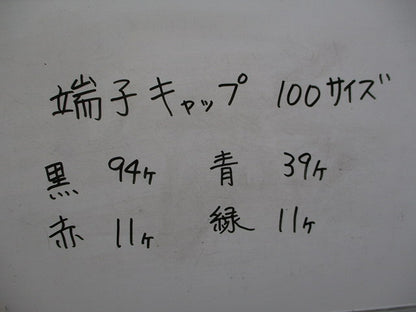 端子キャップ 100サイズ
黒 94ヶ 青 39ヶ
赤 11ヶ 緑 11ヶ